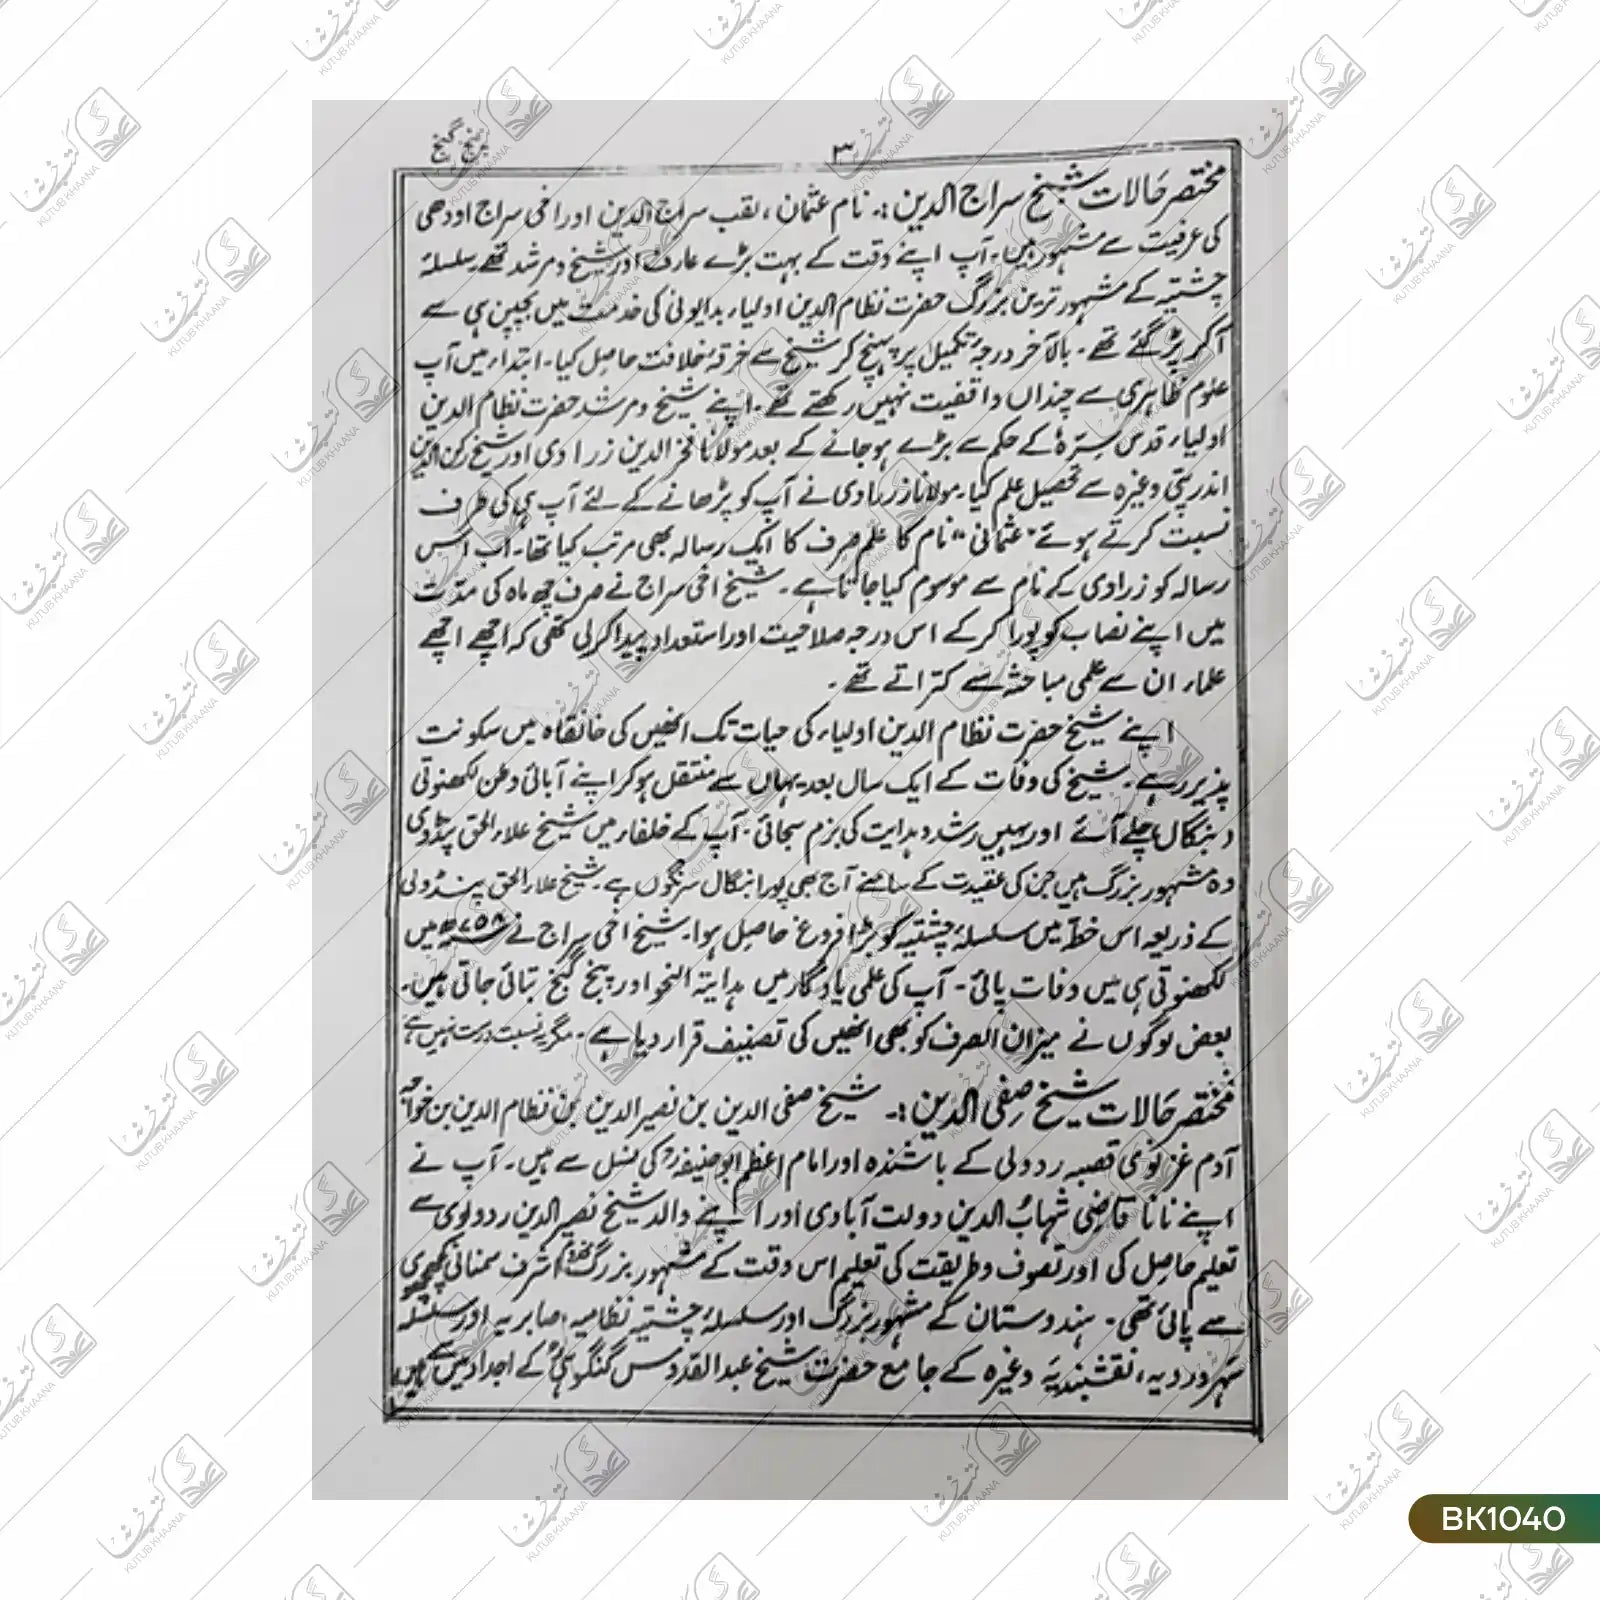 پنج گنج
۳
مختصر حالات شیخ سراج الدین :۔ نام عثمان، لقب سراج الدین اور اخی سراج اودھی
کی عرفیت سے مشہور ہیں۔ آپ اپنے وقت کے بہت بڑے عارف اور شیخ و مرشد تھے۔ سلسلۂ
چشتیہ کے مشہور ترین بزرگ حضرت نظام الدین اولیاء بدایونی کی خدمت میں بچپن ہی سے
آکر پڑ گئے تھے۔ بالآخر درجۂ تکمیل پر پہنچ کر شیخ سے خرقۂ خلافت حاصل کیا۔ ابتداء میں آپ
علوم ظاہری سے چنداں واقفیت نہیں رکھتے تھے۔ اپنے شیخ و مرشد حضرت نظام الدین
اولیاء قدس سرہٗ کے حکم سے بڑے ہو جانے کے بعد مولانا فخر الدین زرادی اور شیخ رکن الدین
اندرپتی وغیرہ سے تحصیل علم کیا۔ مولانا زرادی نے آپ کو پڑھانے کے لئے آپ ہی کی طرف
نسبت کرتے ہوئے "عثمانی" نام کا علم صرف کا ایک رسالہ بھی مرتب کیا تھا۔ اب اس
رسالہ کو زرادی کے نام سے موسوم کیا جاتا ہے۔ شیخ اخی سراج نے صرف چھ ماہ کی مدت
میں اپنے نصاب کو پورا کرکے اس درجہ صلاحیت اور استعداد پیدا کرلی تھی کہ اچھے اچھے
علماء ان سے علمی مباحثہ سے کتراتے تھے۔
اپنے شیخ حضرت نظام الدین اولیاء کی حیات تک انھیں کی خانقاہ میں سکونت
پذیر رہے۔ شیخ کی وفات کے ایک سال بعد یہاں سے منتقل ہو کر اپنے آبائی وطن لکھنوتی
بنگال چلے آئے اور یہیں رشد و ہدایت کی بزم سجائی۔ آپ کے خلفاء میں شیخ علاء الحق پنڈوی
وہ مشہور بزرگ ہیں جن کی عقیدت کے سامنے آج بھی پورا بنگال سرنگوں ہے۔ شیخ علاء الحق پنڈوی
کے ذریعہ اس خطہ میں سلسلۂ چشتیہ کو بڑا فروغ حاصل ہوا۔ شیخ اخی سراج نے ۷۵۸ھ میں
لکھنوتی ہی میں وفات پائی۔ آپ کی علمی یادگار میں ہدایۃ النحو اور پنج گنج بتائی جاتی ہیں۔
بعض لوگوں نے میزان الصرف کو بھی انھیں کی تصنیف قرار دیا ہے۔ مگر یہ نسبت درست نہیں ہے
مختصر حالات شیخ صفی الدین :۔ شیخ صفی الدین بن نصیر الدین بن نظام الدین بن خواجہ
آدم غزنوی قصبہ ردولی کے باشندہ اور امام اعظم ابو حنیفہؒ کی نسل سے ہیں۔ آپ نے
اپنے نانا قاضی شہاب الدین دولت آبادی اور اپنے والد شیخ نصیر الدین ردولوی سے
تعلیم حاصل کی اور تصوف و طریقت کی تعلیم اس وقت کے مشہور بزرگ اشرف سمنانی کچھوچھوی
سے پائی تھی۔ ہندوستان کے مشہور بزرگ اور سلسلۂ چشتیہ نظامیہ، صابریہ اور سلسلہ
سہروردیہ، نقشبندیہ وغیرہ کے جامع حضرت شیخ عبدالقدوس گنگوہیؒ کے اجداد میں سے ہیں
BK1040
کتب خانہ
KUTUB KHAANA